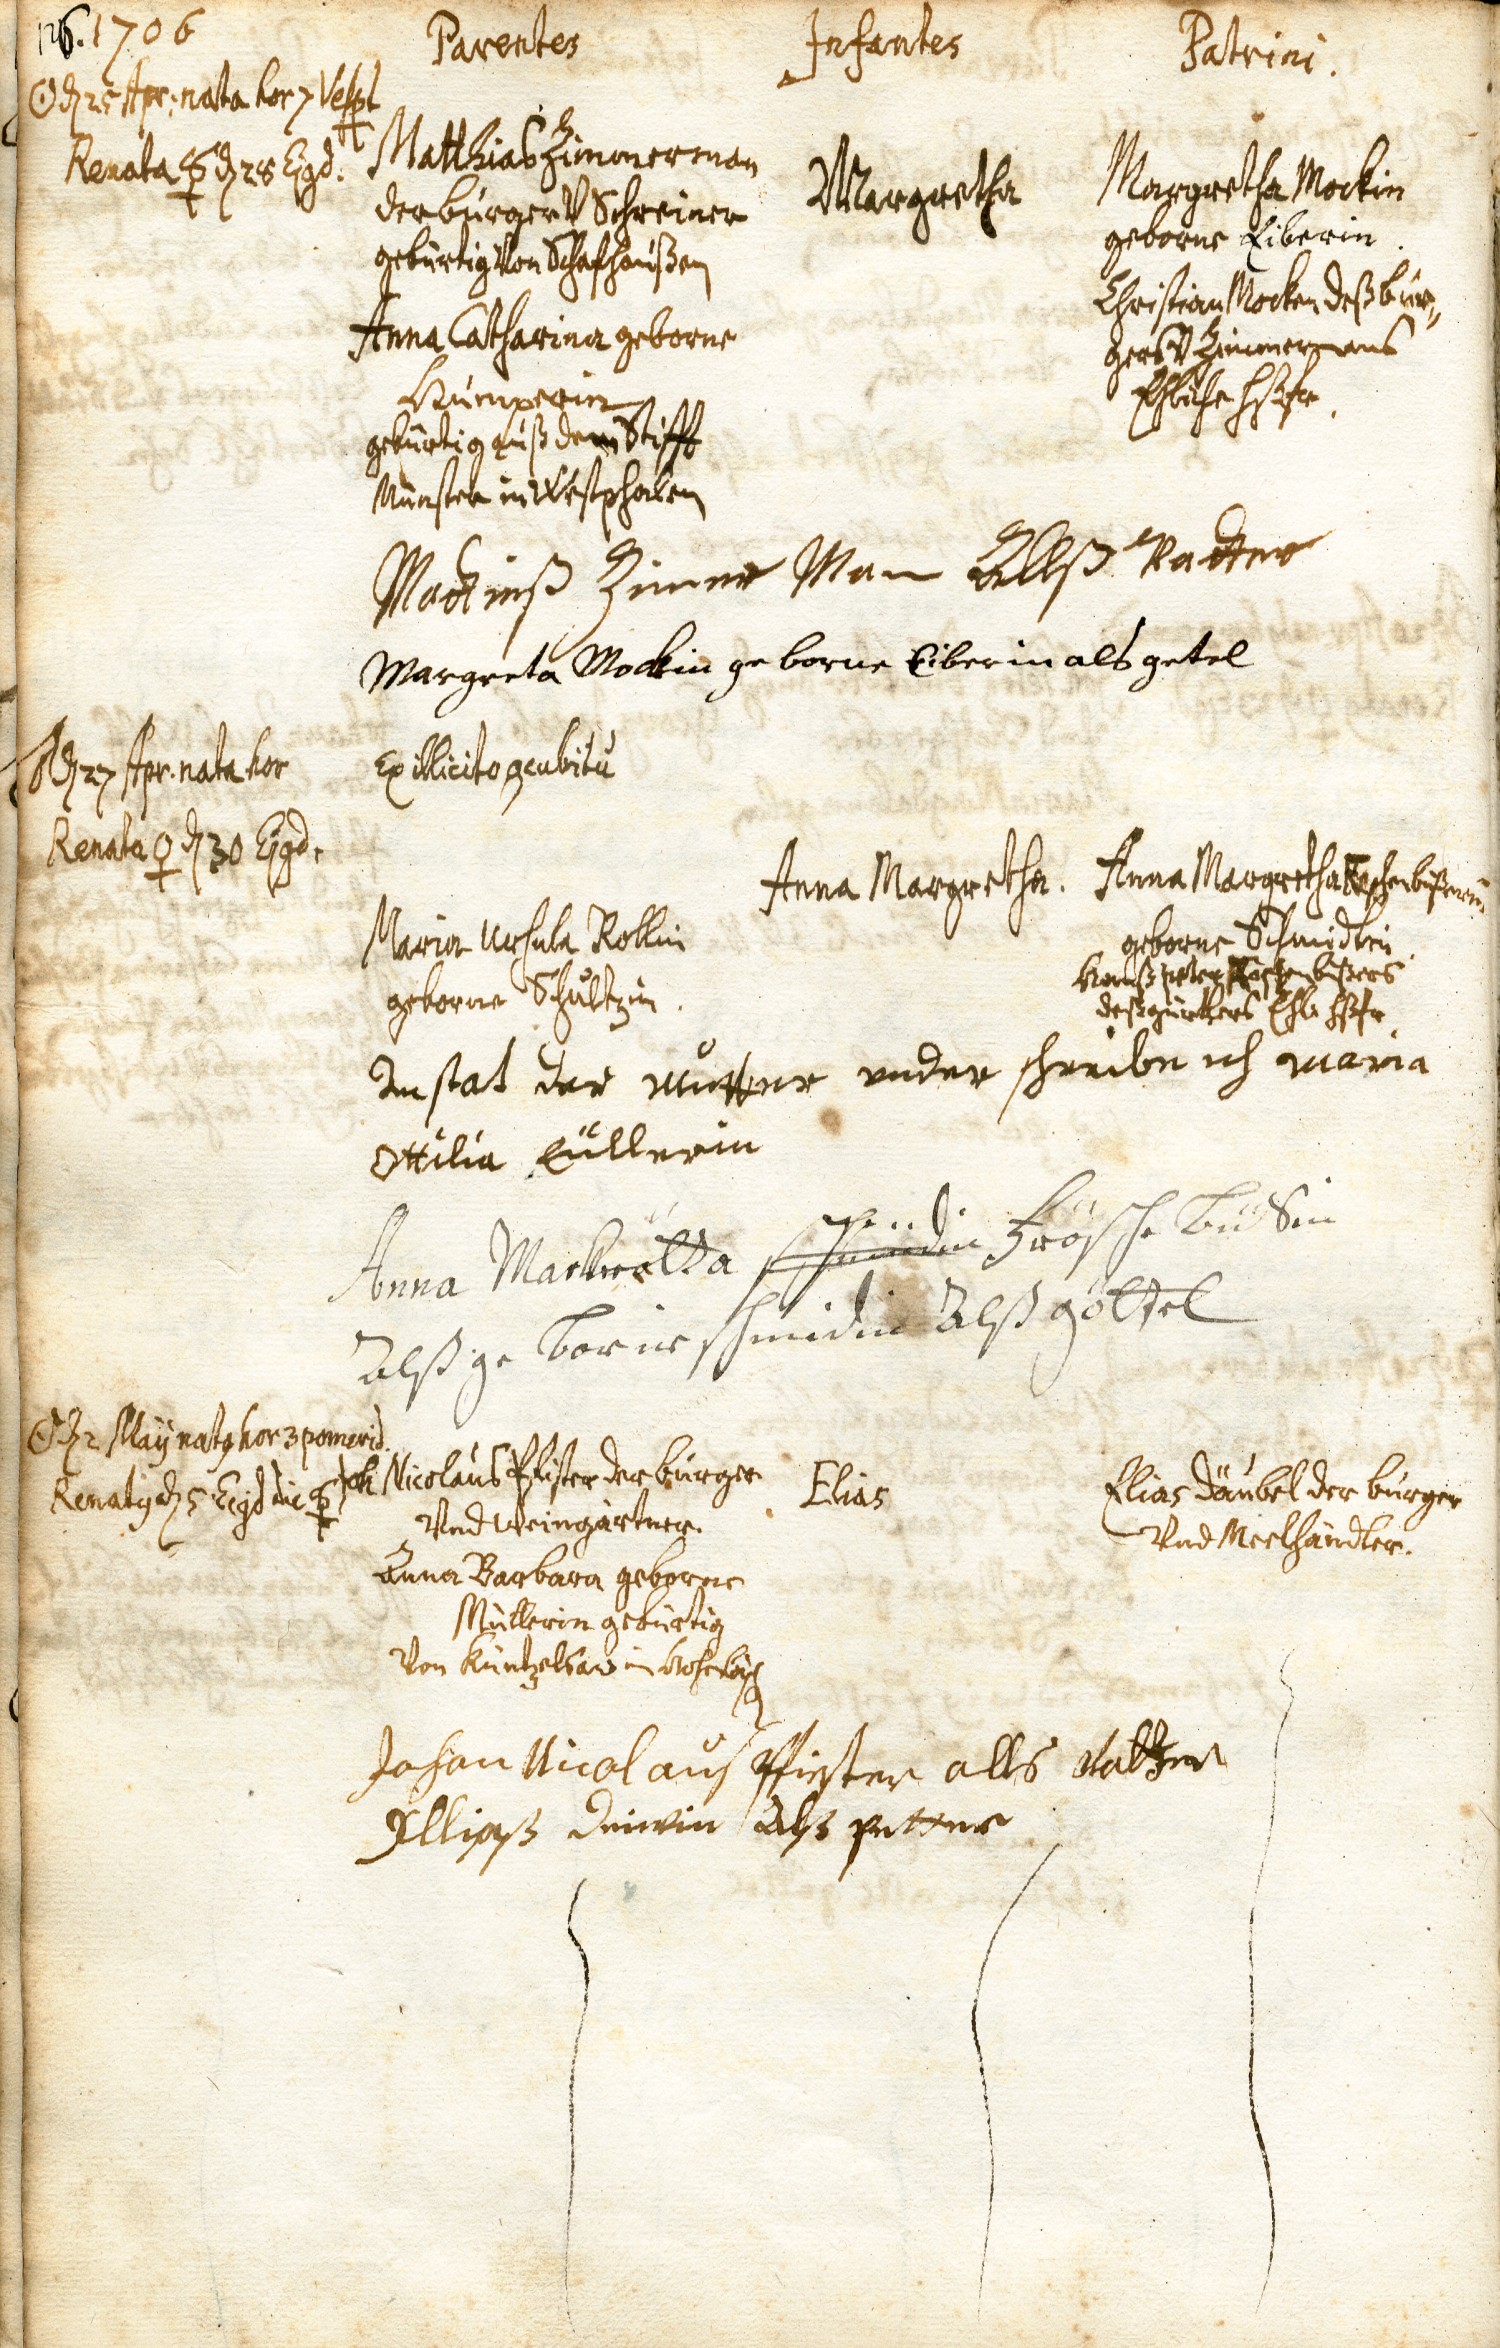 126. 1706 Parentes Infantes Patrini.
☉ d. 25 Apr. nata hor 7 Vesp.
Renata ☿ d. 28 Ejusd.
Matthias Zimmerman
der burger V Schreiner
gebürtig Von Schafhaußen
Anna Catharina geborne
Kümperin
gebürtig auß dem Stifft
Münster in Westphalen
Margretha
Margretha Mockin
geborne Eiberin.
Christian Mocken deß bur-
gers V Zimmermans
Ehliche Hßfr.
Mattheiß Zimmer Man Allß Vatter
Margreta Mockin geborne Eiberin als getel
♂ d. 27 Apr. nata hor
Renata ♀ d. 30 Ejusd.
Ex illicito concubitu
Maria Ursula Rollin
geborne Schultzin.
Anna Margretha.
Anna Margretha
geborne Schmidtin
Hanß peter
deß gürtlers Ehl. Hßfr.
In stat der Mutter under schreibe ich maria
Ottilia Müllerin
Anna Markretta schmidin Fröschebüsin
Alß ge borne schmidin Alß göttel
☉ d. 2 Maÿ natus hor 3 pomerid.
Renatus d. 5 Ejusd die ☿
Joh. Nicolaus Pfister der burger
Und Weingärtner.
Anna Barbara geborne
Müllerin gebürtig
Von Küntzelsaw in
Elias
Elias Däubel der burger
Und Meelhändler.
Johan Nicolaus Pfister alls Vatter
Elliaß Als petter